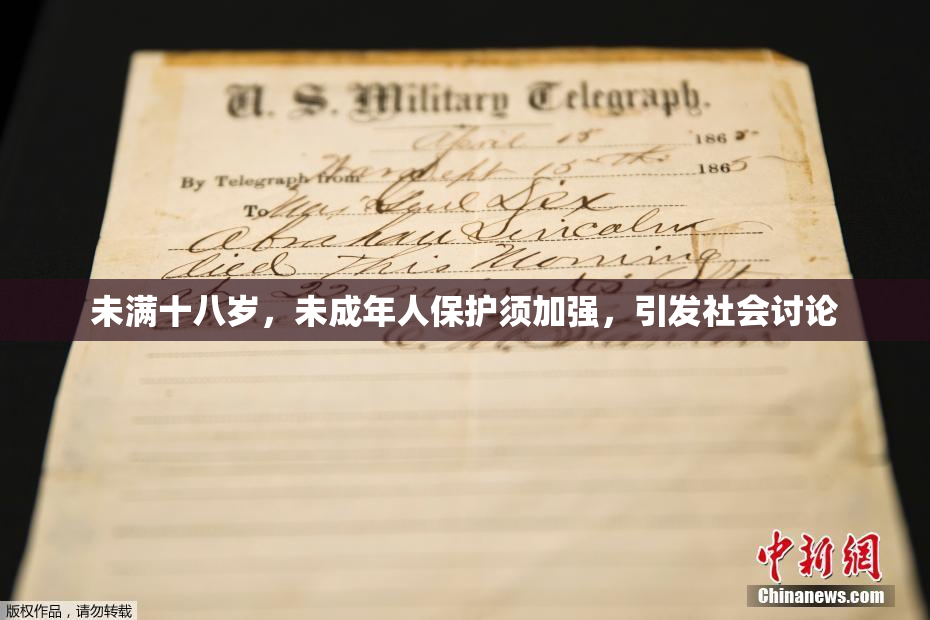 U. S. Military Telegraph.
April 15 1865
By Telegraph from Wash Dept 15th 1865
To Maj Genl Dix
Abraham Lincoln
died This Morning
at 22 minutes after
未满十八岁，未成年人保护须加强，引发社会讨论
E. M. Stanton
中新網
Chinanews.com
版权作品，请勿转载